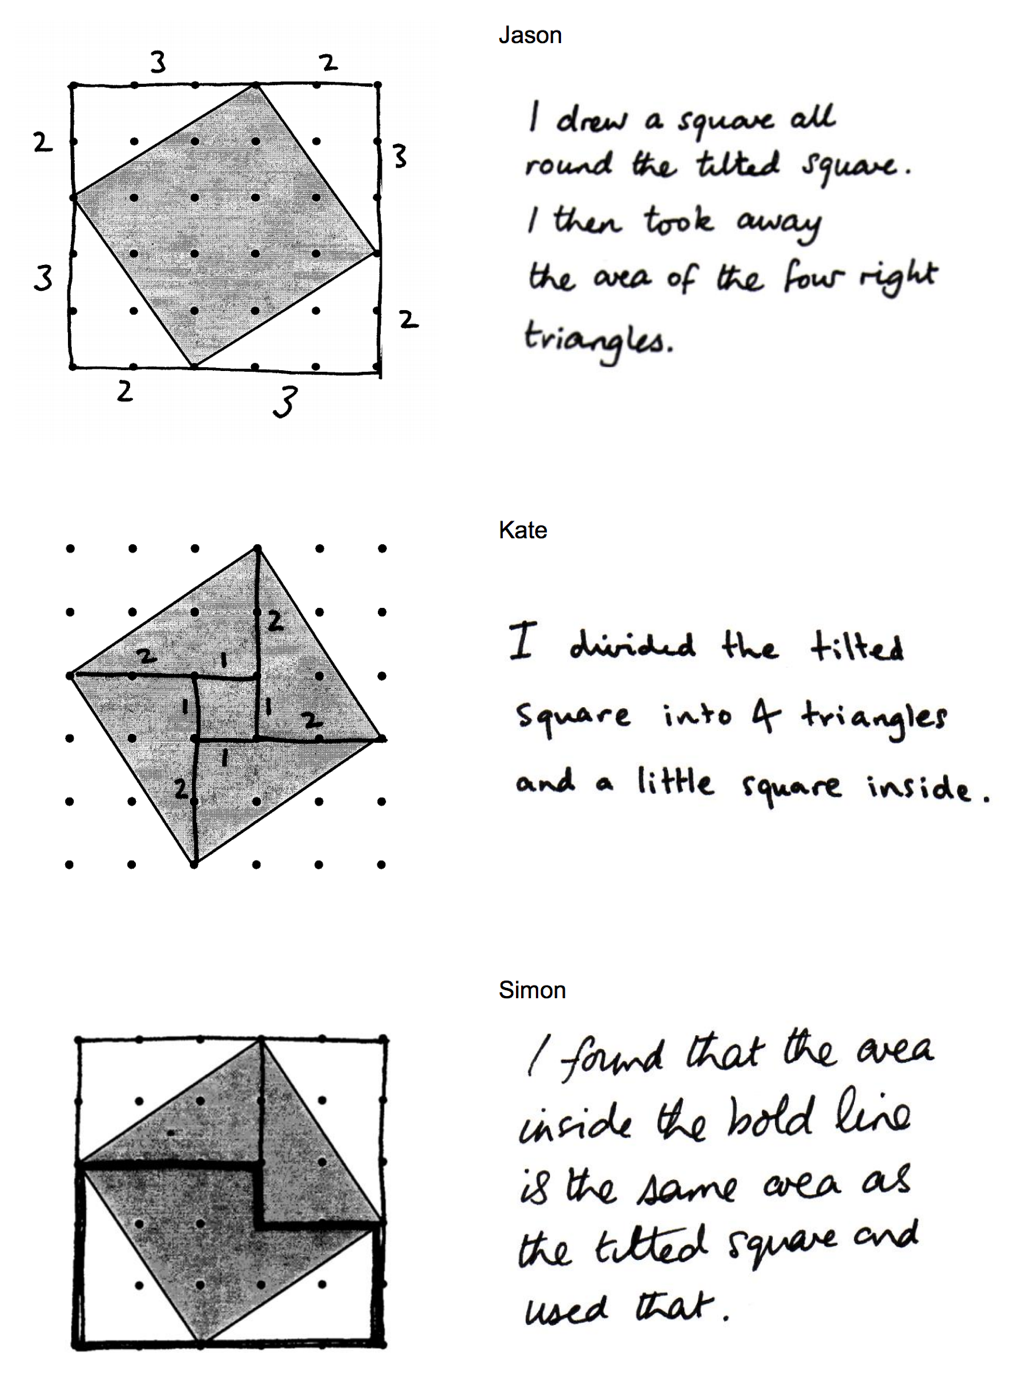 Jason
3 2
2
3
3
2
2
3
I drew a square all
round the tilted square.
I then took away
the area of the four right
triangles.
Kate
2
2 1
1 1 2
1
2
I divided the tilted
square into 4 triangles
and a little square inside.
Simon
I found that the area
inside the bold line
is the same area as
the tilted square and
used that.